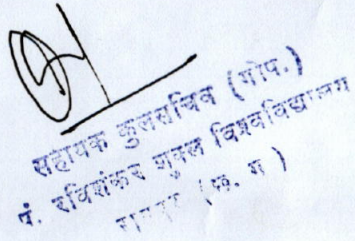 सहायक कुलसचिव (गोप.)
पं. रविशंकर शुक्ल विश्वविद्यालय
रायपुर (छ. ग )